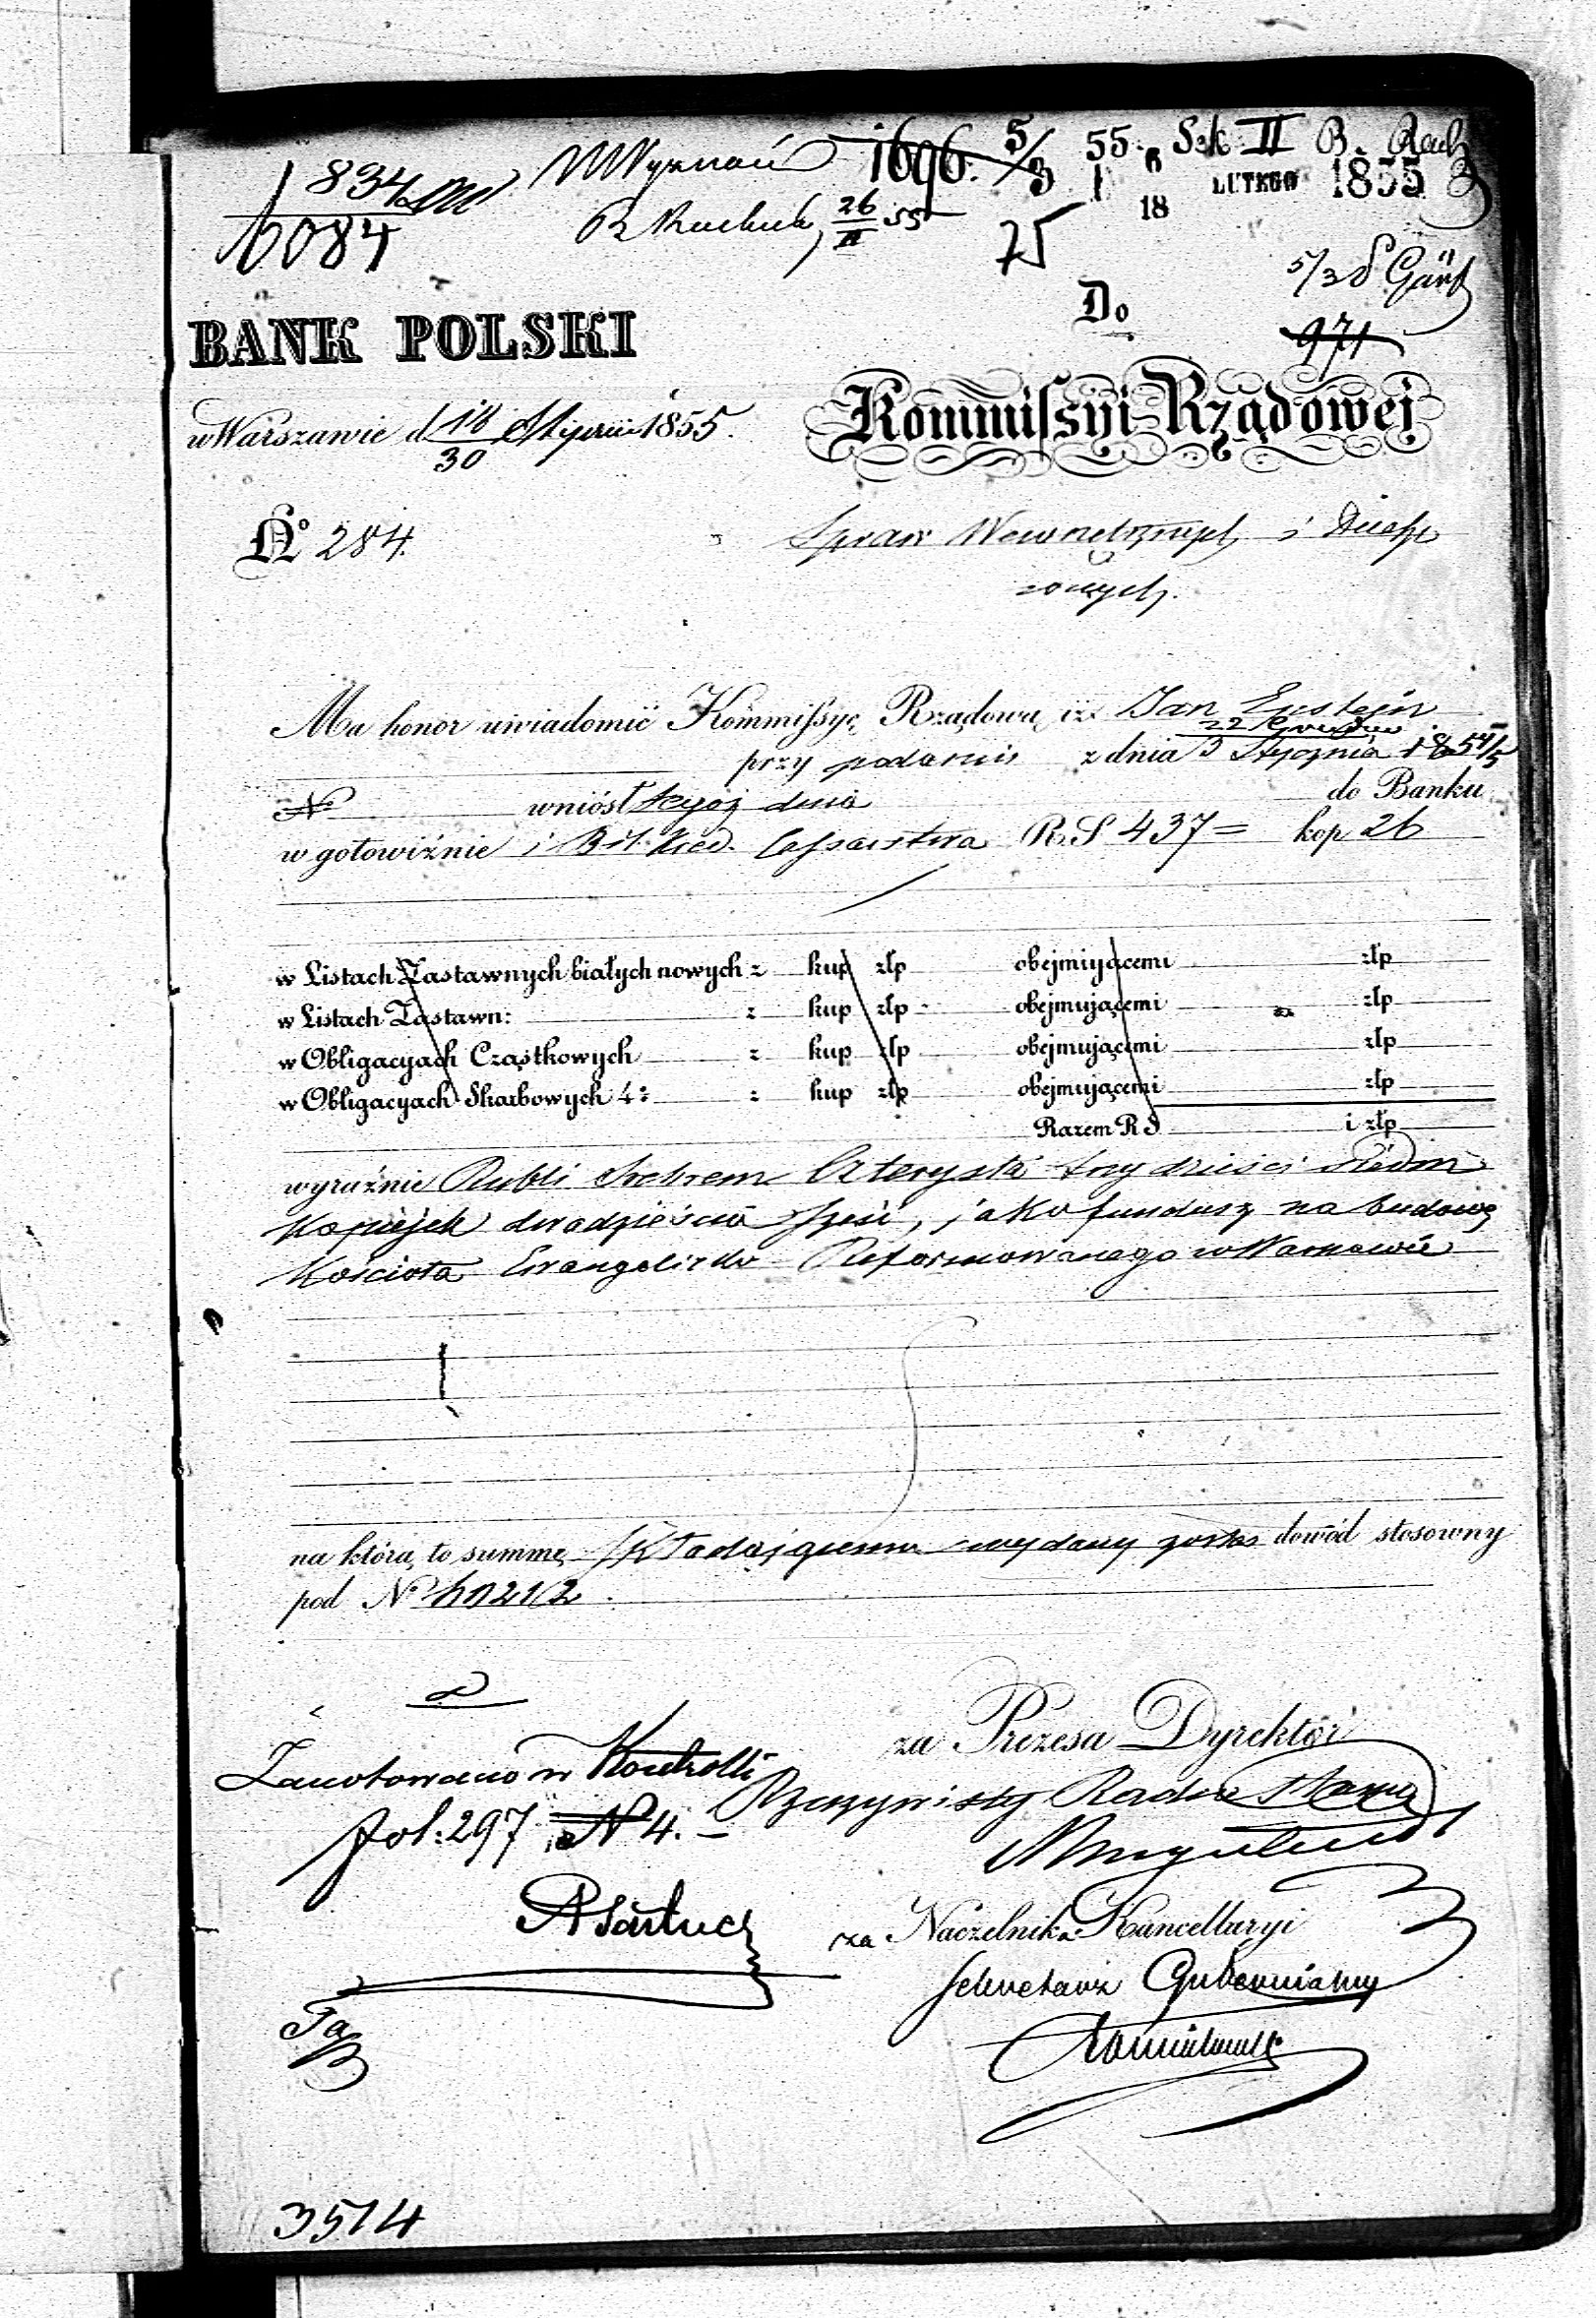 1834
6084
W Wyznań 1696. 5/3 55. Sek II B. Rach
6/18 LUTEGO 1855
26/II 55
75
5/3
971
BANK POLSKI
Do
Kommissyi Rządowej
w Warszawie d 18/30 Stycznia 1855.
No 284.
Spraw Wewnętrznych i Ducho
wnych.
Ma honor uwiadomić Kommissyę Rządową, iż Jan Epstejn
22 Grudnia
przy podaniu z dnia 3 Stycznia 1854/5
No wniósł tegoż dnia do Banku
w gotowiźnie i Bil. Kred. Cesarstwa R. S 437= kop 26
w Listach Zastawnych białych nowych z kup złp obejmującemi złp
w Listach Zastawn: z kup złp obejmującemi złp
w Obligacyach Cząstkowych z kup złp obejmującemi złp
w Obligacyach Skarbowych 4% z kup złp obejmującemi złp
Razem R S i złp
wyraźnie Rubli Srebrem Czterysta trzydzieści siedm
Kopiejek dwadzieścia sześć, jako fundusz na budowę
Kościoła Ewangelicko Reformowanego w Warszawie
na którą to summę składającemu wydany został dowód stosowny
pod No
za Prezesa Dyrektor
Rzeczywisty Radca Stanu
Zanotowano w Kontrolli
fol: 297 N 4.
za Naczelnika Kancellaryi
Sekretarz Gubernialny
3514